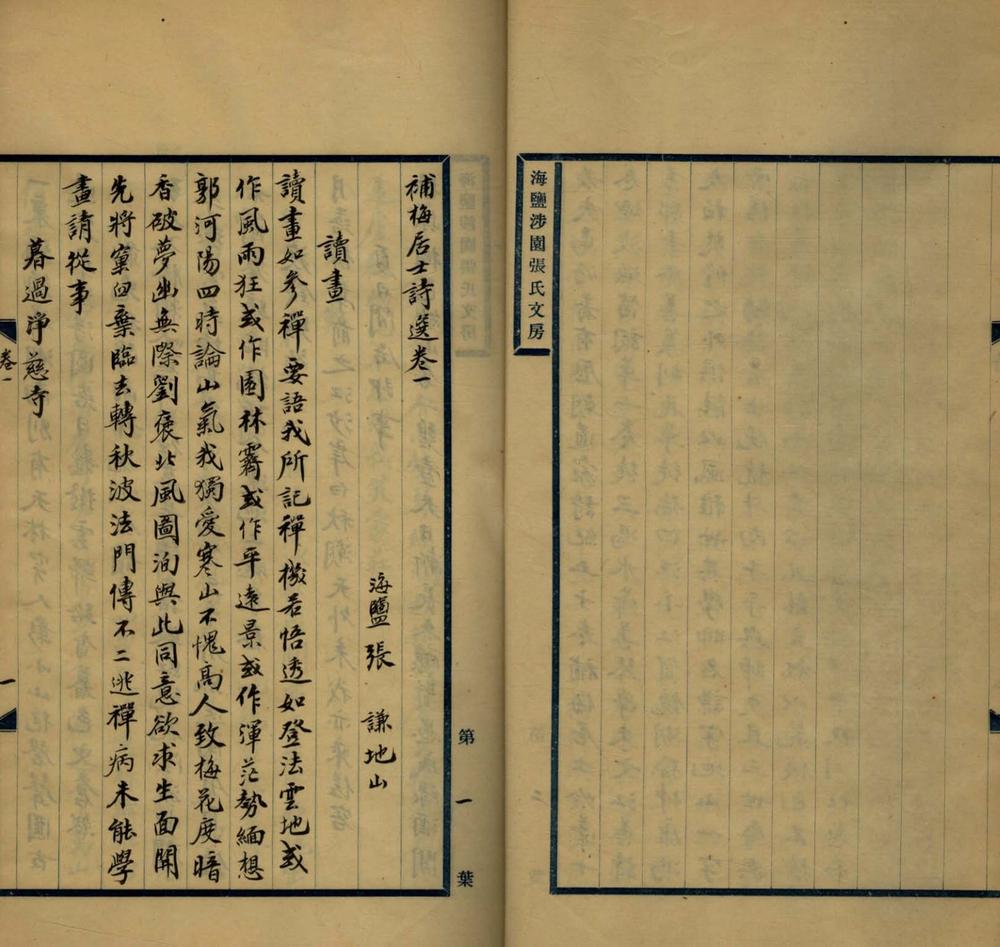 海鹽涉園張氏文房
第一葉
補梅居士詩選卷一
海鹽 張 謙地山
讀畫
讀畫如參禪要語我所記禪機若悟透如登法雲地或
作風雨狂或作園林霽或作平遠景或作渾茫勢緬想
郭河陽四時論山氣我獨愛寒山不愧高人致梅花度暗
香破夢幽無際劉褒北風圖洵與此同意欲求生面開
先將窠臼棄臨去轉秋波法門傳不二逃禪病未能學
畫請從事
暮過淨慈寺
卷一
一